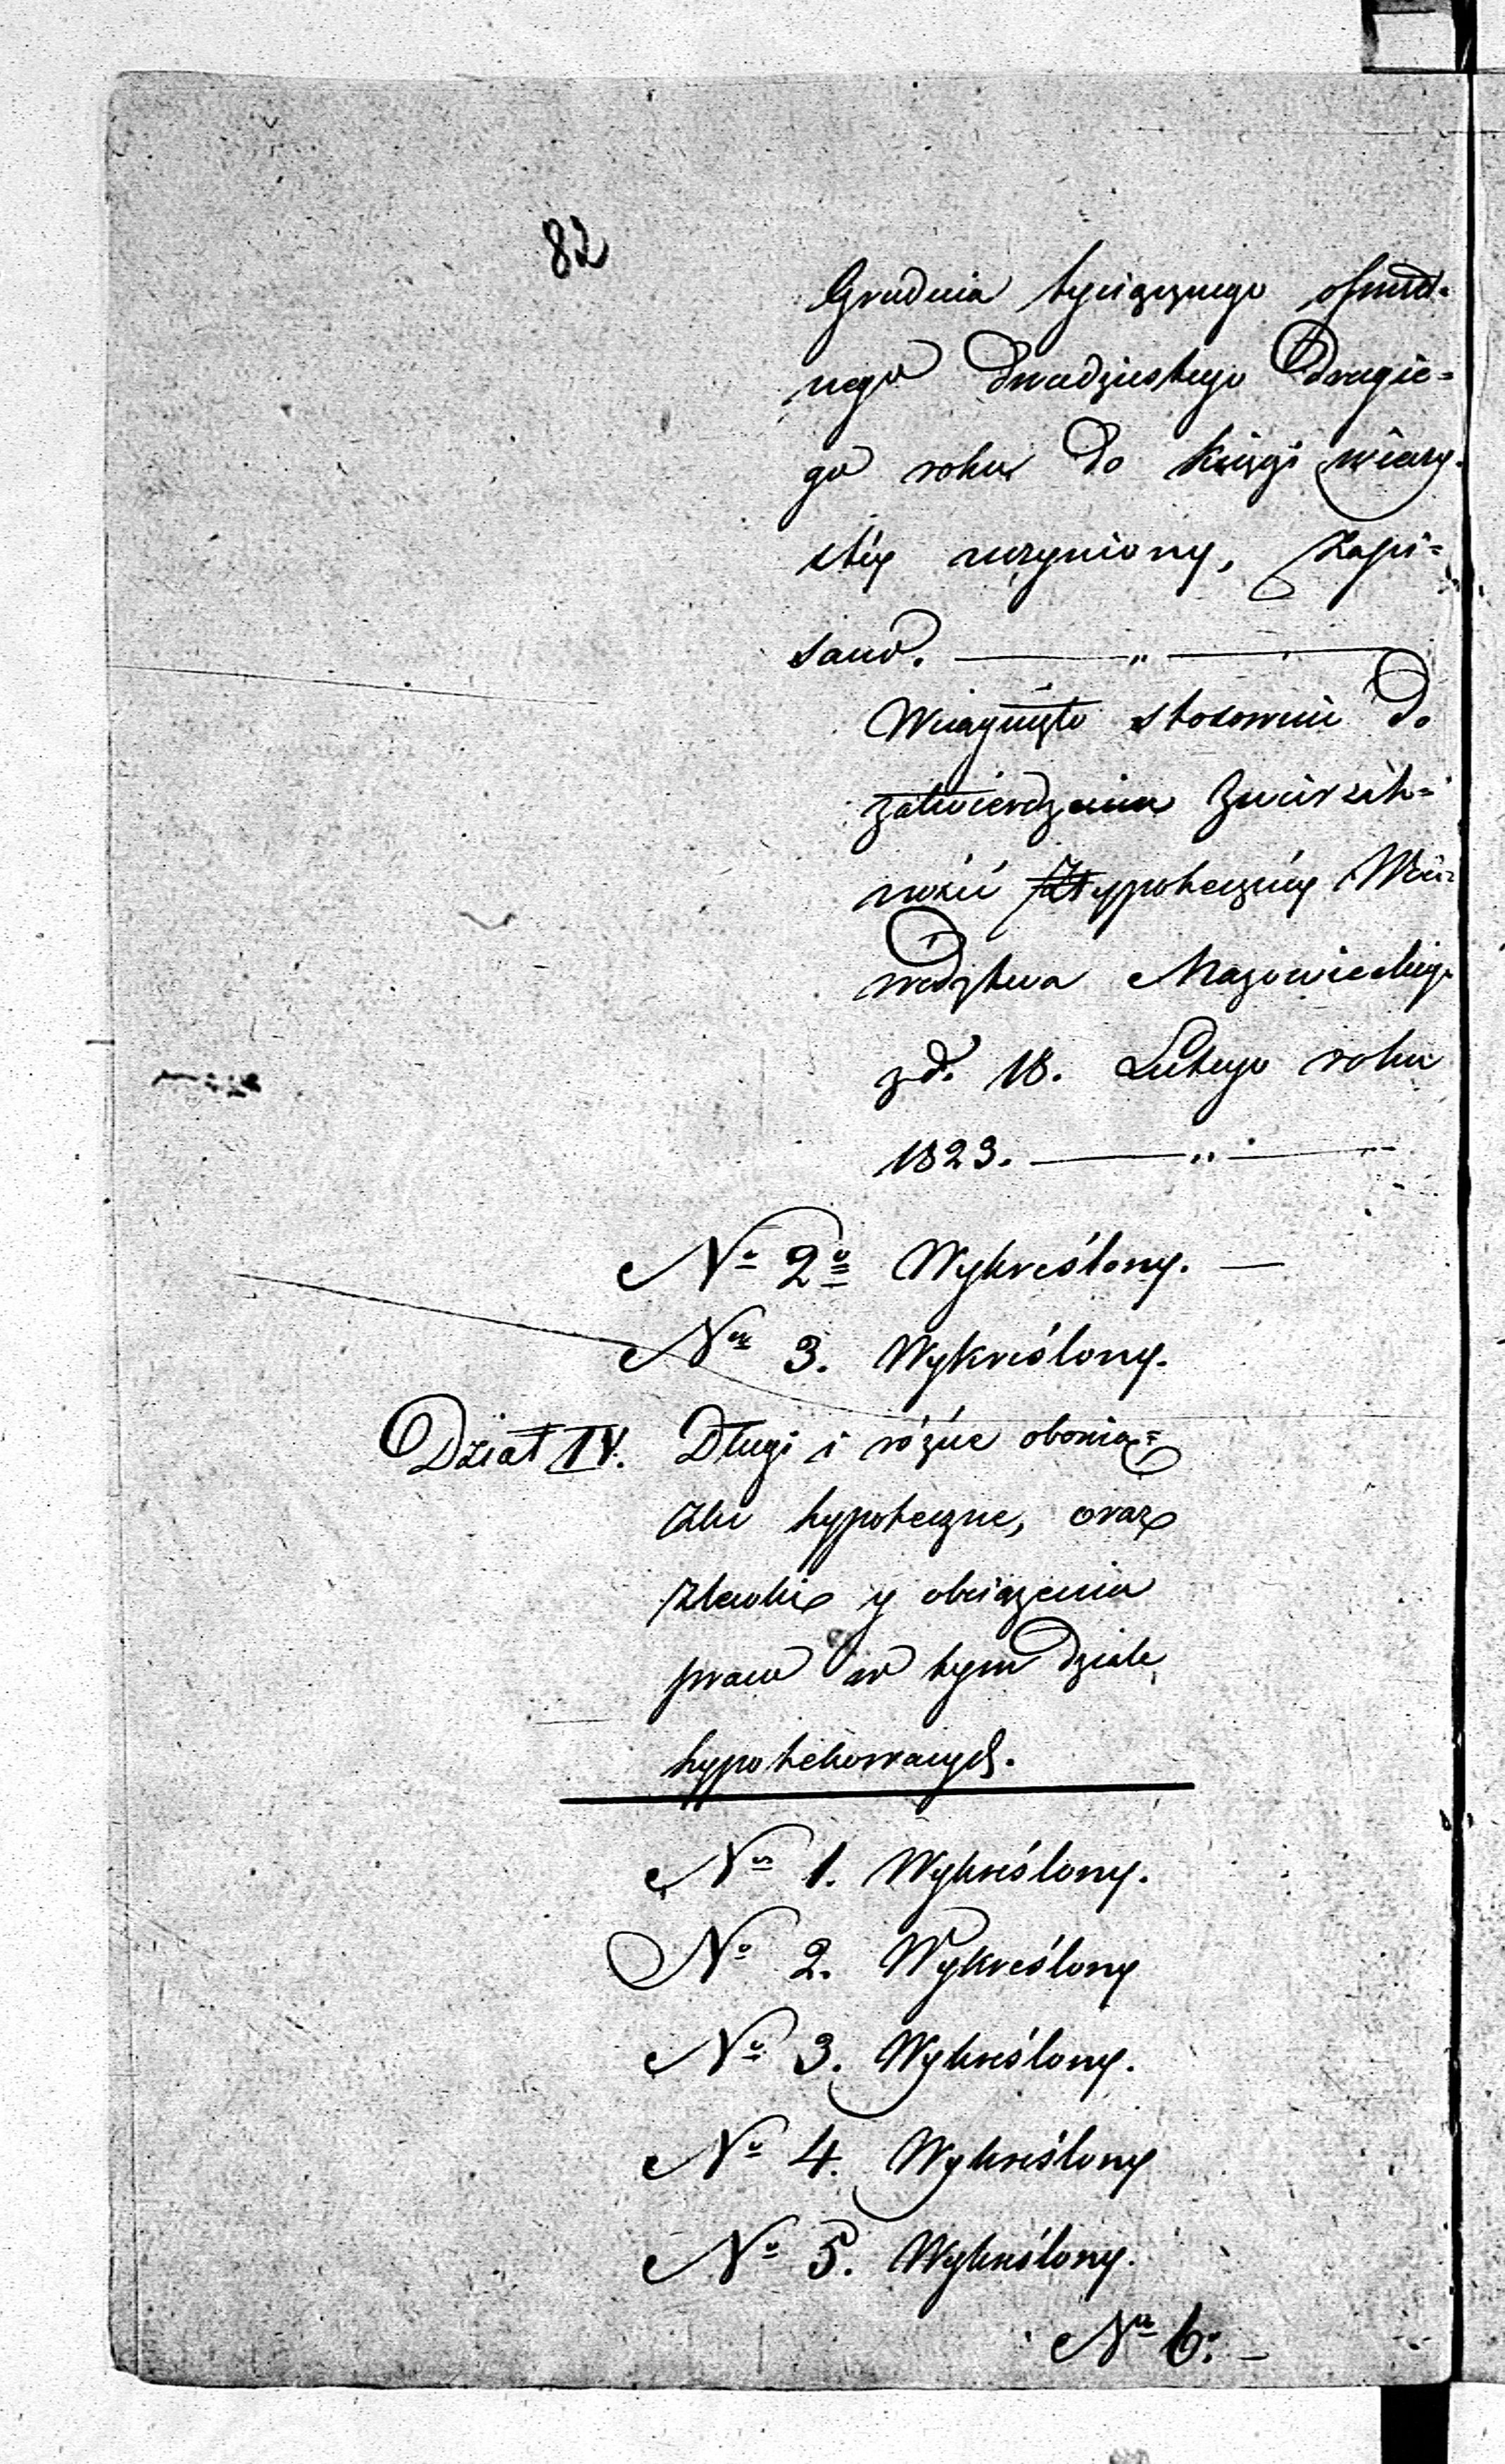 82
Grudnia tysiącznego ośmset-
nego dwudziestego Drugie=
go roku do księgi wieczy-
stéy uczyniony, zapi=
sano. — „ —
Wciągnięto stosownie do
zatwierdzenia Zwierzch=
ności Hypoteczney Woie-
wództwa Mazowieckiego
z d. 18. Lutego roku
1823. — „ —
No 2o Wykreślony. —
Nr 3. Wykreślony.
Dział IV. Długi i różne obowią=
zki hypoteczne, oraz
zlewki y obciążenia
praw w tym dziale
hypotekowanych.
No 1. Wykreślony.
No 2. Wykreślony
No 3. Wykreślony.
No 4. Wykreślony
No 5. Wykreślony.
Nr 6. —